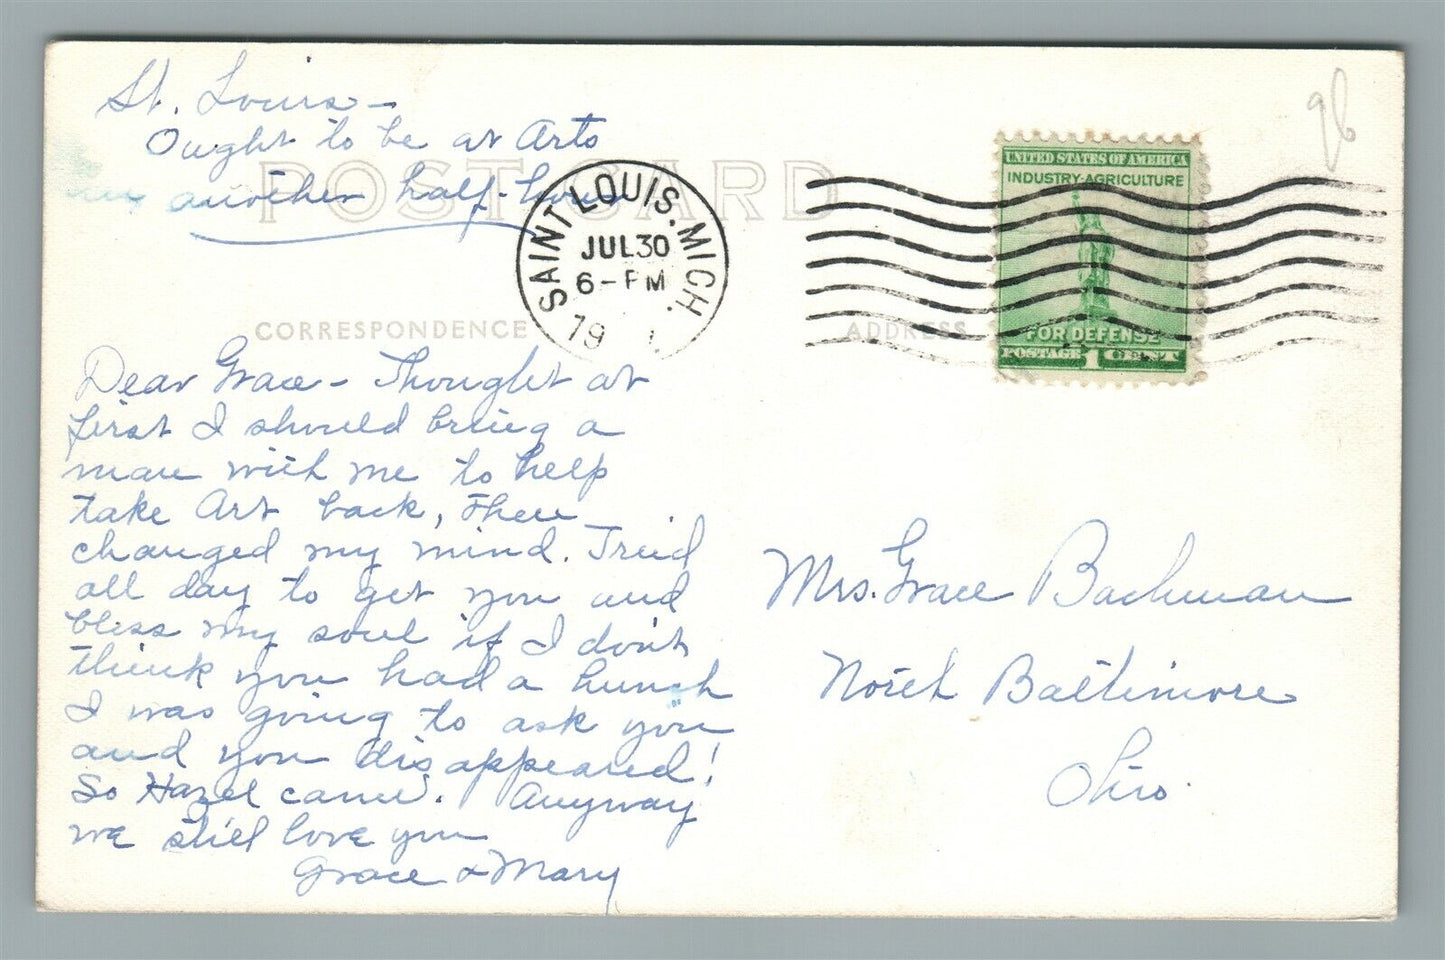 St. Louis –
Ought to be at Arts
in another half-hour
POST CARD
SAINT LOUIS. MICH.
JUL 30
6 – PM
19
UNITED STATES OF AMERICA
INDUSTRY-AGRICULTURE
FOR DEFENSE
POSTAGE 1 CENT
96
CORRESPONDENCE
ADDRESS
Dear Grace – Thought at
first I should bring a
man with me to help
take Art back, then
changed my mind. Treid
all day to get you and
bless my soul if I don't
think you had a hunch
I was going to ask you
and you disappeared!
So Hazel came. Anyway
we still love you
Grace & Mary
Mrs. Grace Bachman
North Baltimore
Ohio.